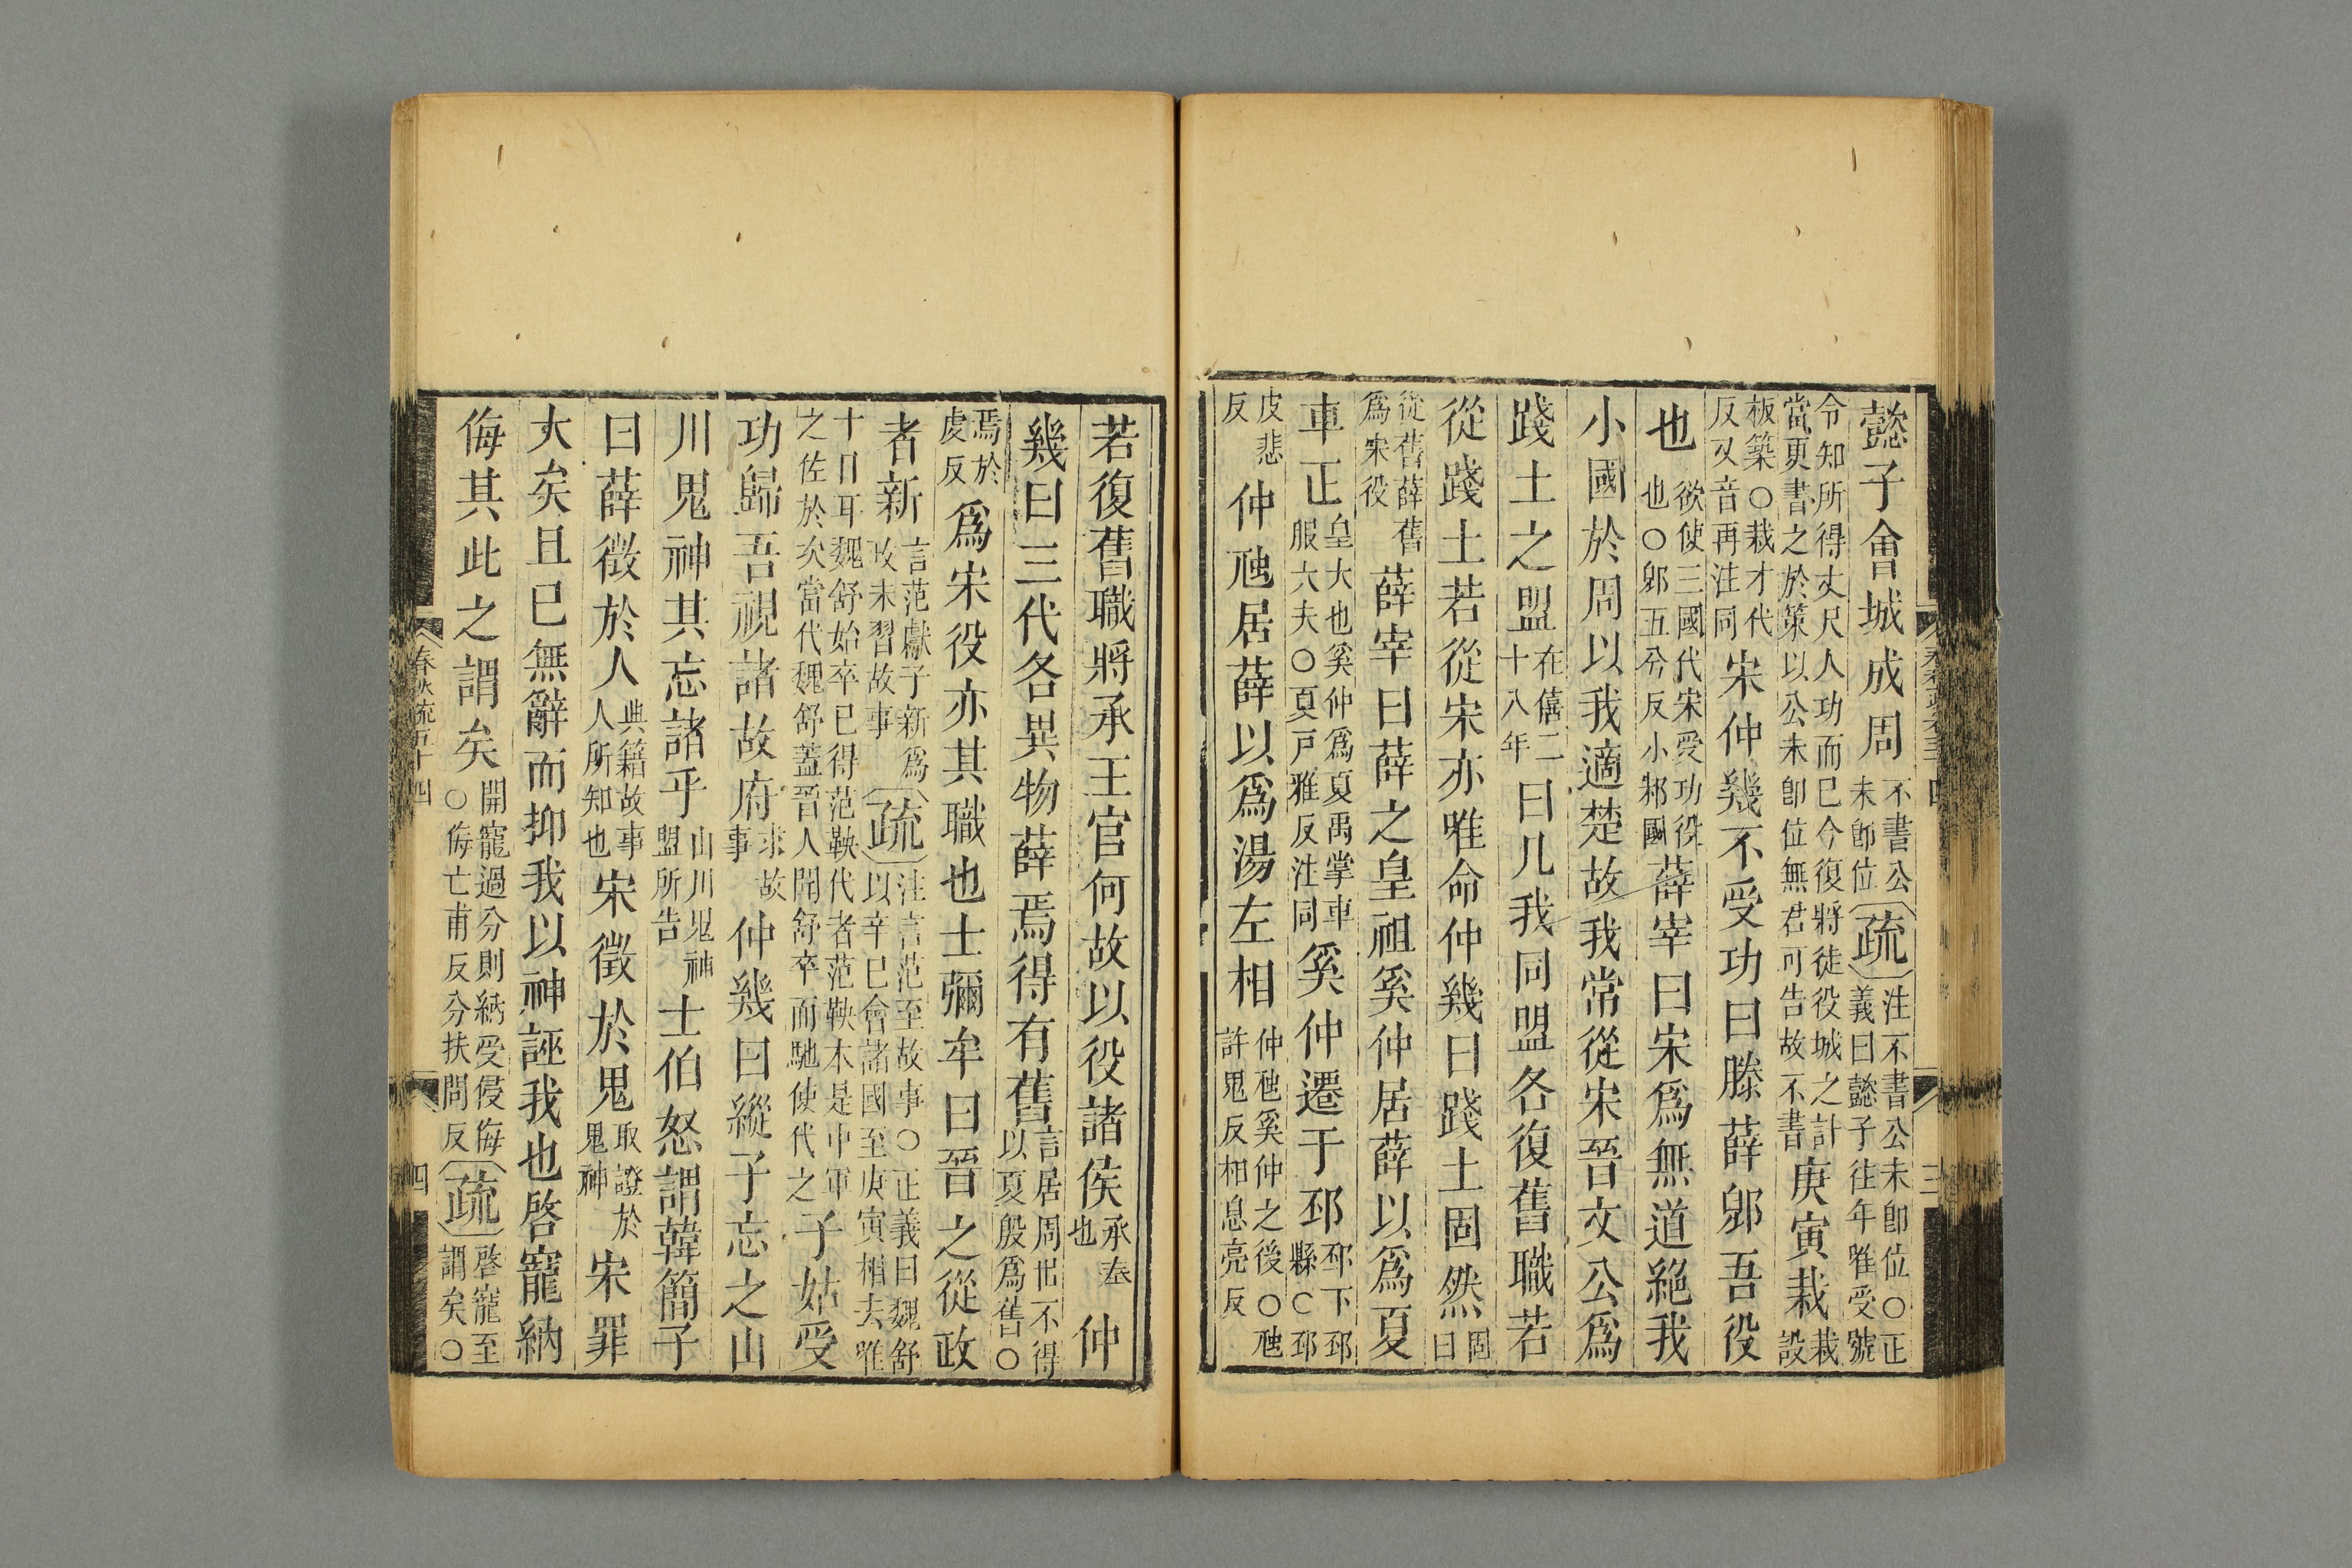 懿子會城成周不書公未卽位疏注不書公未卽位〇正義曰懿子往年唯受號
令知所得丈尺人功而巳今復將徒役城之計當更書之於策以公未卽位無君可告故不書庚寅栽栽設
板築〇栽才代反又音再注同宋仲幾不受功曰滕薛郳吾役
也欲使三國代宋受功役也〇郳五兮反小邾國薛宰曰宋爲無道絕我
小國於周以我適楚故我常從宋晉文公爲
踐土之盟在僖二十八年曰凡我同盟各復舊職若
從踐土若從宋亦唯命仲幾曰踐土固然固曰
從舊薛舊爲宋役薛宰曰薛之皇祖奚仲居薛以爲夏
車正皇大也奚仲爲夏禹掌車服大夫〇夏戸雅反注同奚仲遷于邳邳下邳縣〇邳
皮悲反仲虺居薛以爲湯左相仲虺奚仲之後〇虺許鬼反相息亮反
若復舊職將承王官何故以役諸侯承奉也仲
幾曰三代各異物薛焉得有舊言居周世不得以夏殷爲舊〇
焉於虔反爲宋役亦其職也士彌牟曰晉之從政
者新言范獻子新爲政未習故事疏注言范至故事〇正義曰魏舒以辛巳會諸國至庚寅相去唯
十日耳魏舒始卒巳得范鞅代者范鞅本是中軍之佐於次當代魏舒蓋晉人聞舒卒而馳使代之子姑受
功歸吾視諸故府求故事仲幾曰縱子忘之山
川鬼神其忘諸乎山川鬼神盟所告士伯怒謂韓簡子
曰薛徵於人典籍故事人所知也宋徵於鬼取證於鬼神宋罪
大矣且巳無辭而抑我以神誣我也啓寵納
侮其此之謂矣開寵過分則納受侵侮〇侮亡甫反分扶問反疏啓寵至謂矣〇
春秋疏五十四
四